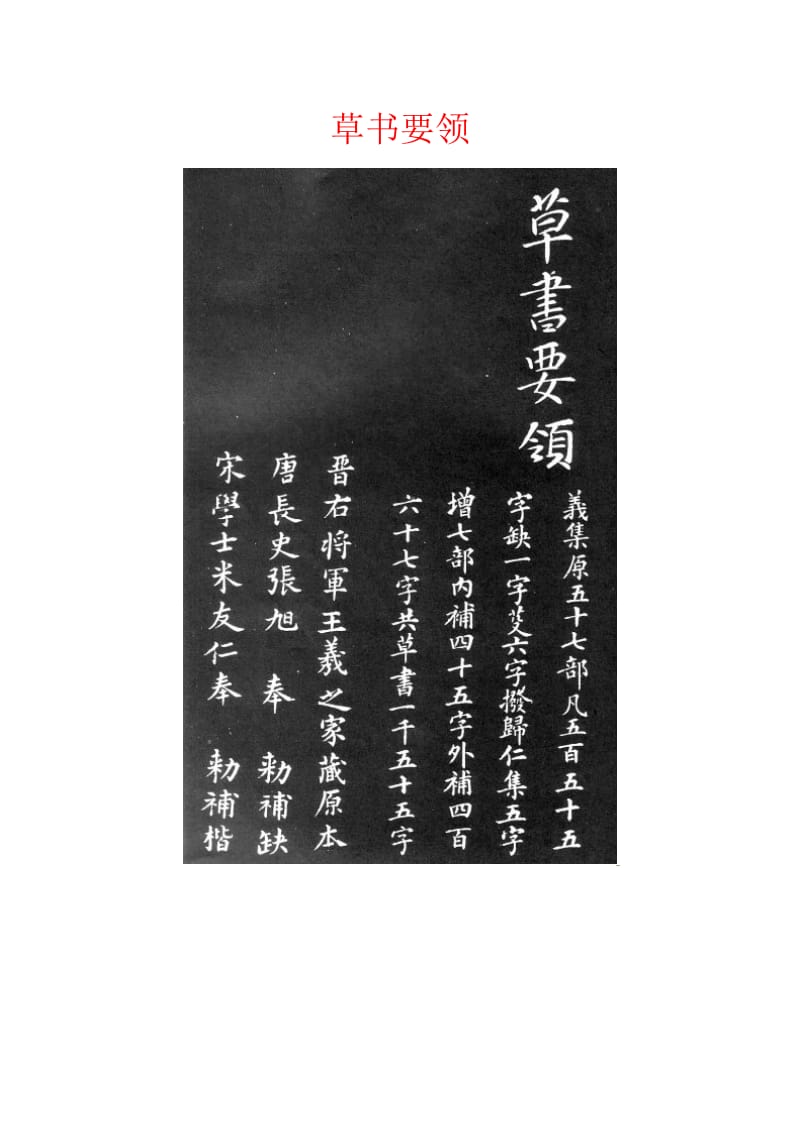 草书要领
草書要領
義集原五十七部凡五百五十五
字缺一字芟六字撥歸仁集五字
增七部内補四十五字外補四百
六十七字共草書一千五十五字
晋右将軍王羲之家藏原本
唐長史張旭奉勅補缺
宋學士米友仁奉勅補楷